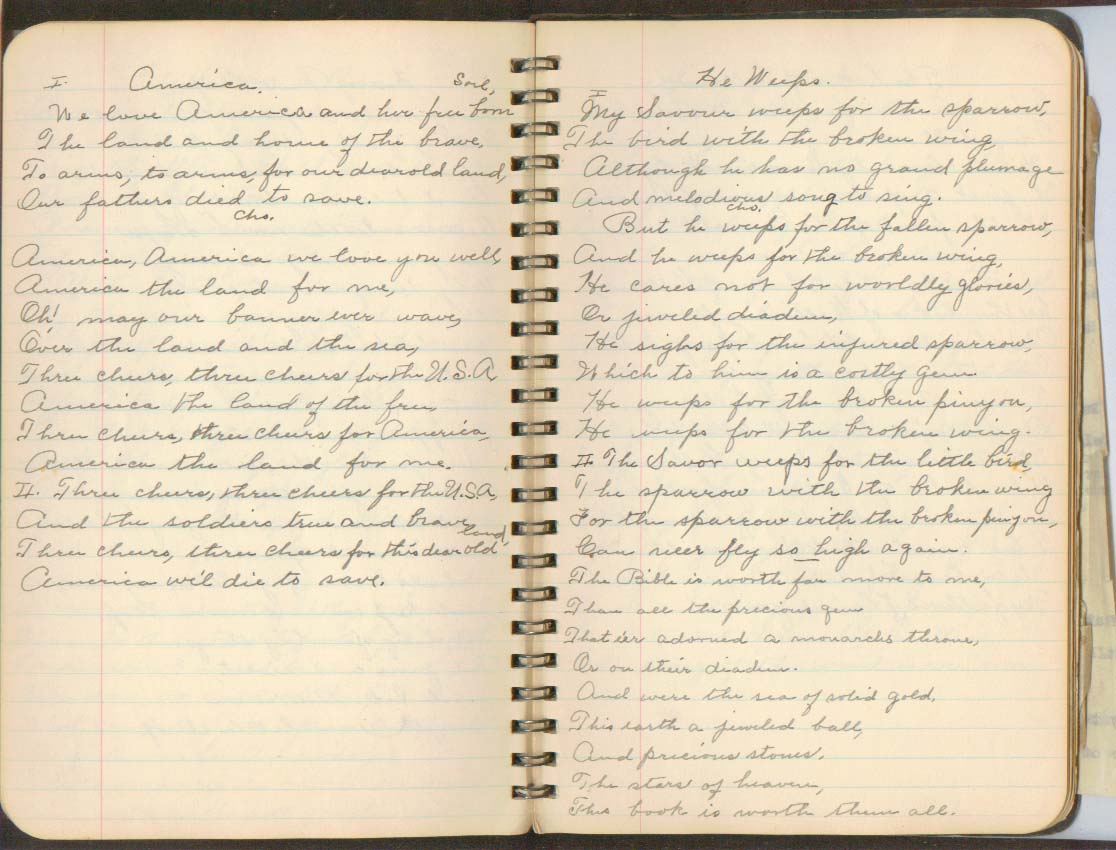 I. America.
We love America and her free born soil,
The land and home of the brave,
To arms, to arms, for our dear old land,
Our fathers died to save.
Cho.
America, America we love you well,
America the land for me,
Oh! may our banner ever wave,
Over the land and the sea,
Three cheers, three cheers for the U.S.A,
America the land of the free,
Three cheers, three cheers for America,
America the land for me.
II. Three cheers, three cheers for the U.S.A,
And the soldiers true and brave,
Three cheers, three cheers for this dear old land,
America we'l die to save.
He Weeps.
I
My Savour weeps for the sparrow,
The bird with the broken wing,
Although he has no grand plumage
And melodious song to sing.
cho.
But he weeps for the fallen sparrow,
And he weeps for the broken wing,
He cares not for worldly glories,
Or jeweled diadem,
He sighs for the injured sparrow,
Which to him is a costly gem.
He weeps for the broken pinyon,
He weeps for the broken wing.
II The Savor weeps for the little bird,
The sparrow with the broken wing
For the sparrow with the broken pinyon,
Can neer fly so high again.
The Bible is worth far more to me,
Than all the precious gem
That e'er adorned a monarchs throne,
Or on their diadem.
And were the sea of solid gold,
This earth a jeweled ball,
And precious stones,
The stars of heaven,
This book is worth them all.